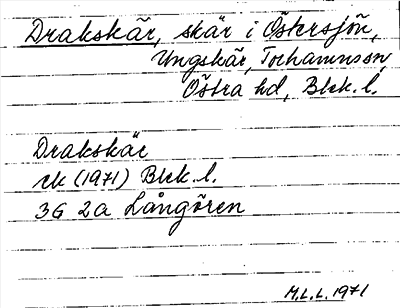 Drakskär, skär i Östersjön,
Ungskär, Torhamns sn,
Östra hd, Blek. l.
Drakskär
rk (1971) Blek. l.
3G 2a Långören
M.L.L. 1971